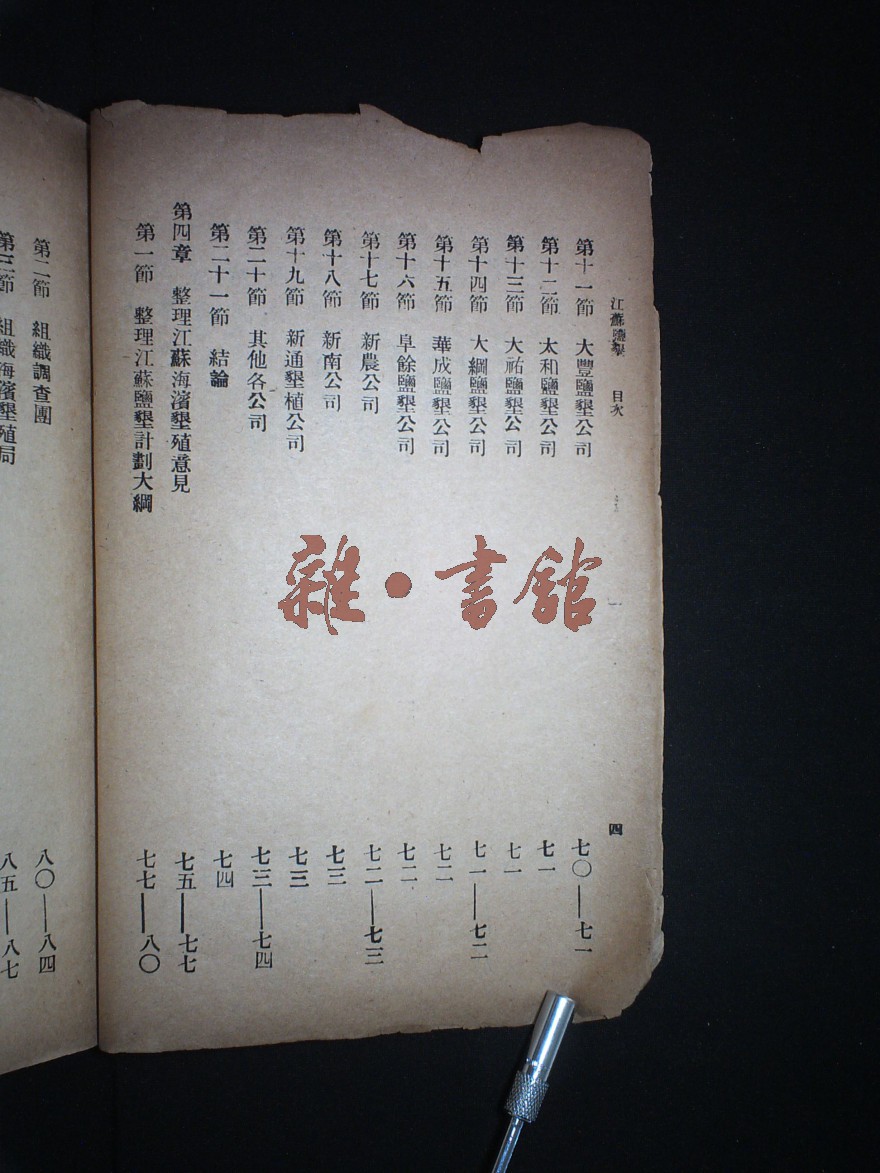 江蘇鹽墾 目次 四
第十一節 大豐鹽墾公司 七〇——七一
第十二節 太和鹽墾公司 七一
第十三節 大祐鹽墾公司 七一
第十四節 大綱鹽墾公司 七一——七二
第十五節 華成鹽墾公司 七二
第十六節 阜餘鹽墾公司 七二
第十七節 新農公司 七二——七三
第十八節 新南公司 七三
第十九節 新通墾植公司 七三
第二十節 其他各公司 七三——七四
第二十一節 結論 七四
第四章 整理江蘇海濱墾殖意見 七五——七七
第一節 整理江蘇鹽墾計劃大綱 七七——八〇
第二節 組織調查團 八〇——八四
第三節 組織海濱墾殖局 八五——八七
雜·書館